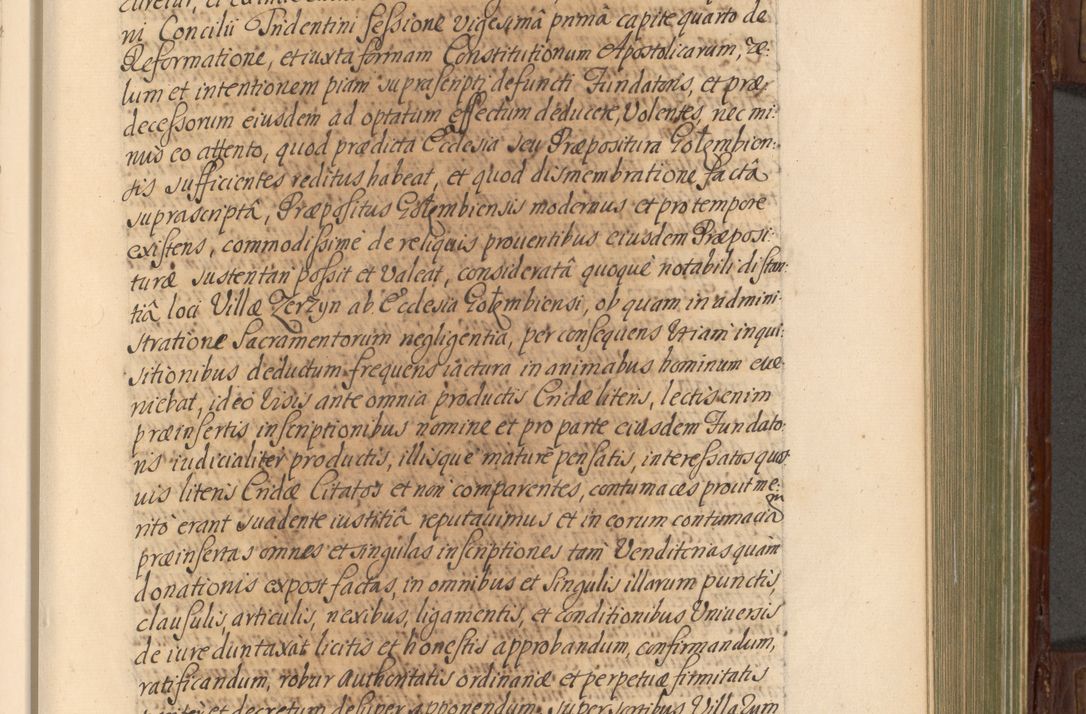 ni Concilii Tridentini sessione vigesimâ primâ capite quarto de
Reformatione, et iuxta formam Constitutionum Apostolicarum, ze:
lum et intentionem piam suprascripti defuncti Fundatoris, et præ
decessorum eiusdem ad optatum effectum deducere, Volentes, nec mi:
nus eo attento, quod prædicta Ecclesia seu Præpositura Gołembien:
sis sufficientes reditus habeat, et quod dismembratione factâ
suprascriptâ, Præpositus Gołembiensis modernus et pro tempore
existens, commodissime de reliquis prouentibus eiusdem Præposi:
turæ sustentari possit et Valeat, consideratâ quoque notabili distan:
tiâ loci Villæ Zerzyn ab Ecclesia Gołembiensi, ob quam in admini:
stratione Sacramentorum negligentia, per consequens Etiam inqui:
sitionibus deductum frequens iactura in animabus hominum eue:
niebat, ideo Visis ante omnia productis Cridæ literis, lectis enim
præinsertis inscriptionibus nomine et pro parte eiusdem Fundato:
ris iudicialiter productis, illisque maturè pensatis, interessatos quos
uis literis Cridæ Citatos et non comparentes, contumaces prout me:
ritò erant suadente iustitiâ reputauimus et in eorum contumaciam
præinsertas omnes et singulas inscriptiones tam Venditorias quam
donationis ex post factas, in omnibus et Singulis illarum punctis,
clausulis, articulis, nexibus, ligamentis, et conditionibus Universis
de iure duntaxat licitis et honestis approbandum, confirmandum,
ratificandum, robur Authentatis ordinariæ et perpetuæ firmitatis
et decretum desuper apponendum, super sortibus Villarum